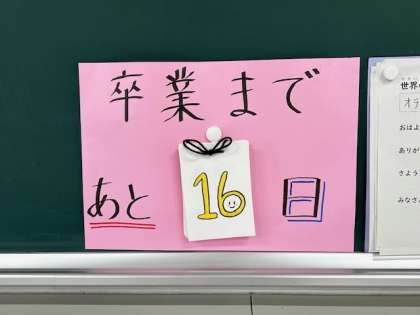 卒業まで
あと 16 日
世界の
おはよ
ありが
さよう
みなさ